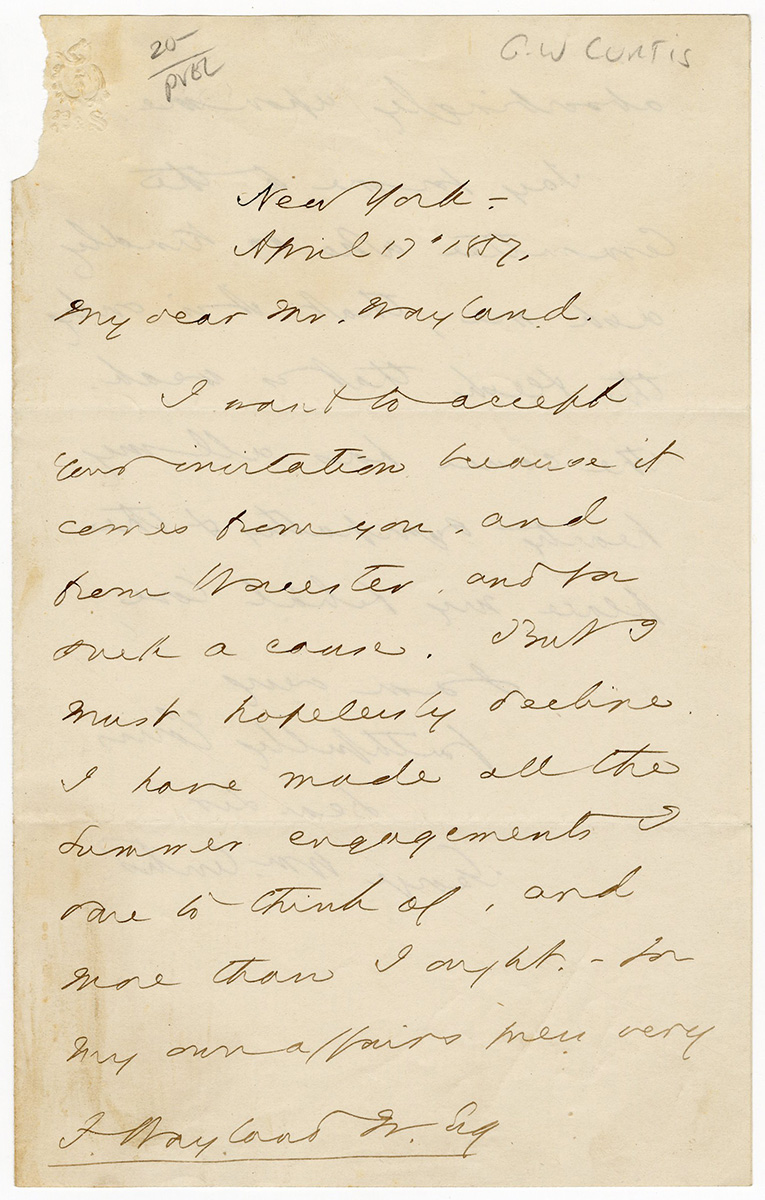 20-
G. W CURTIS
New York -
April 17' 1857.
My dear Mr. Wayland.
I want to accept
your invitation because it
comes from you, and
from Worcester, and for
such a cause. But I
must hopelessly decline.
I have made all the
summer engagements I
dare to think of, and
more than I ought. - for
my own affairs press very
F. Wayland Jr. Esq